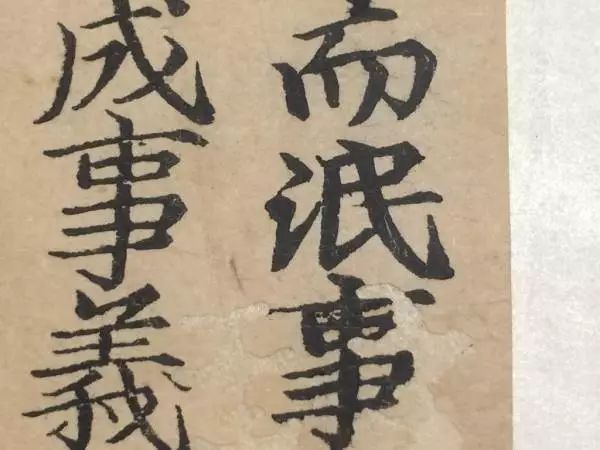 而泯事
成事義